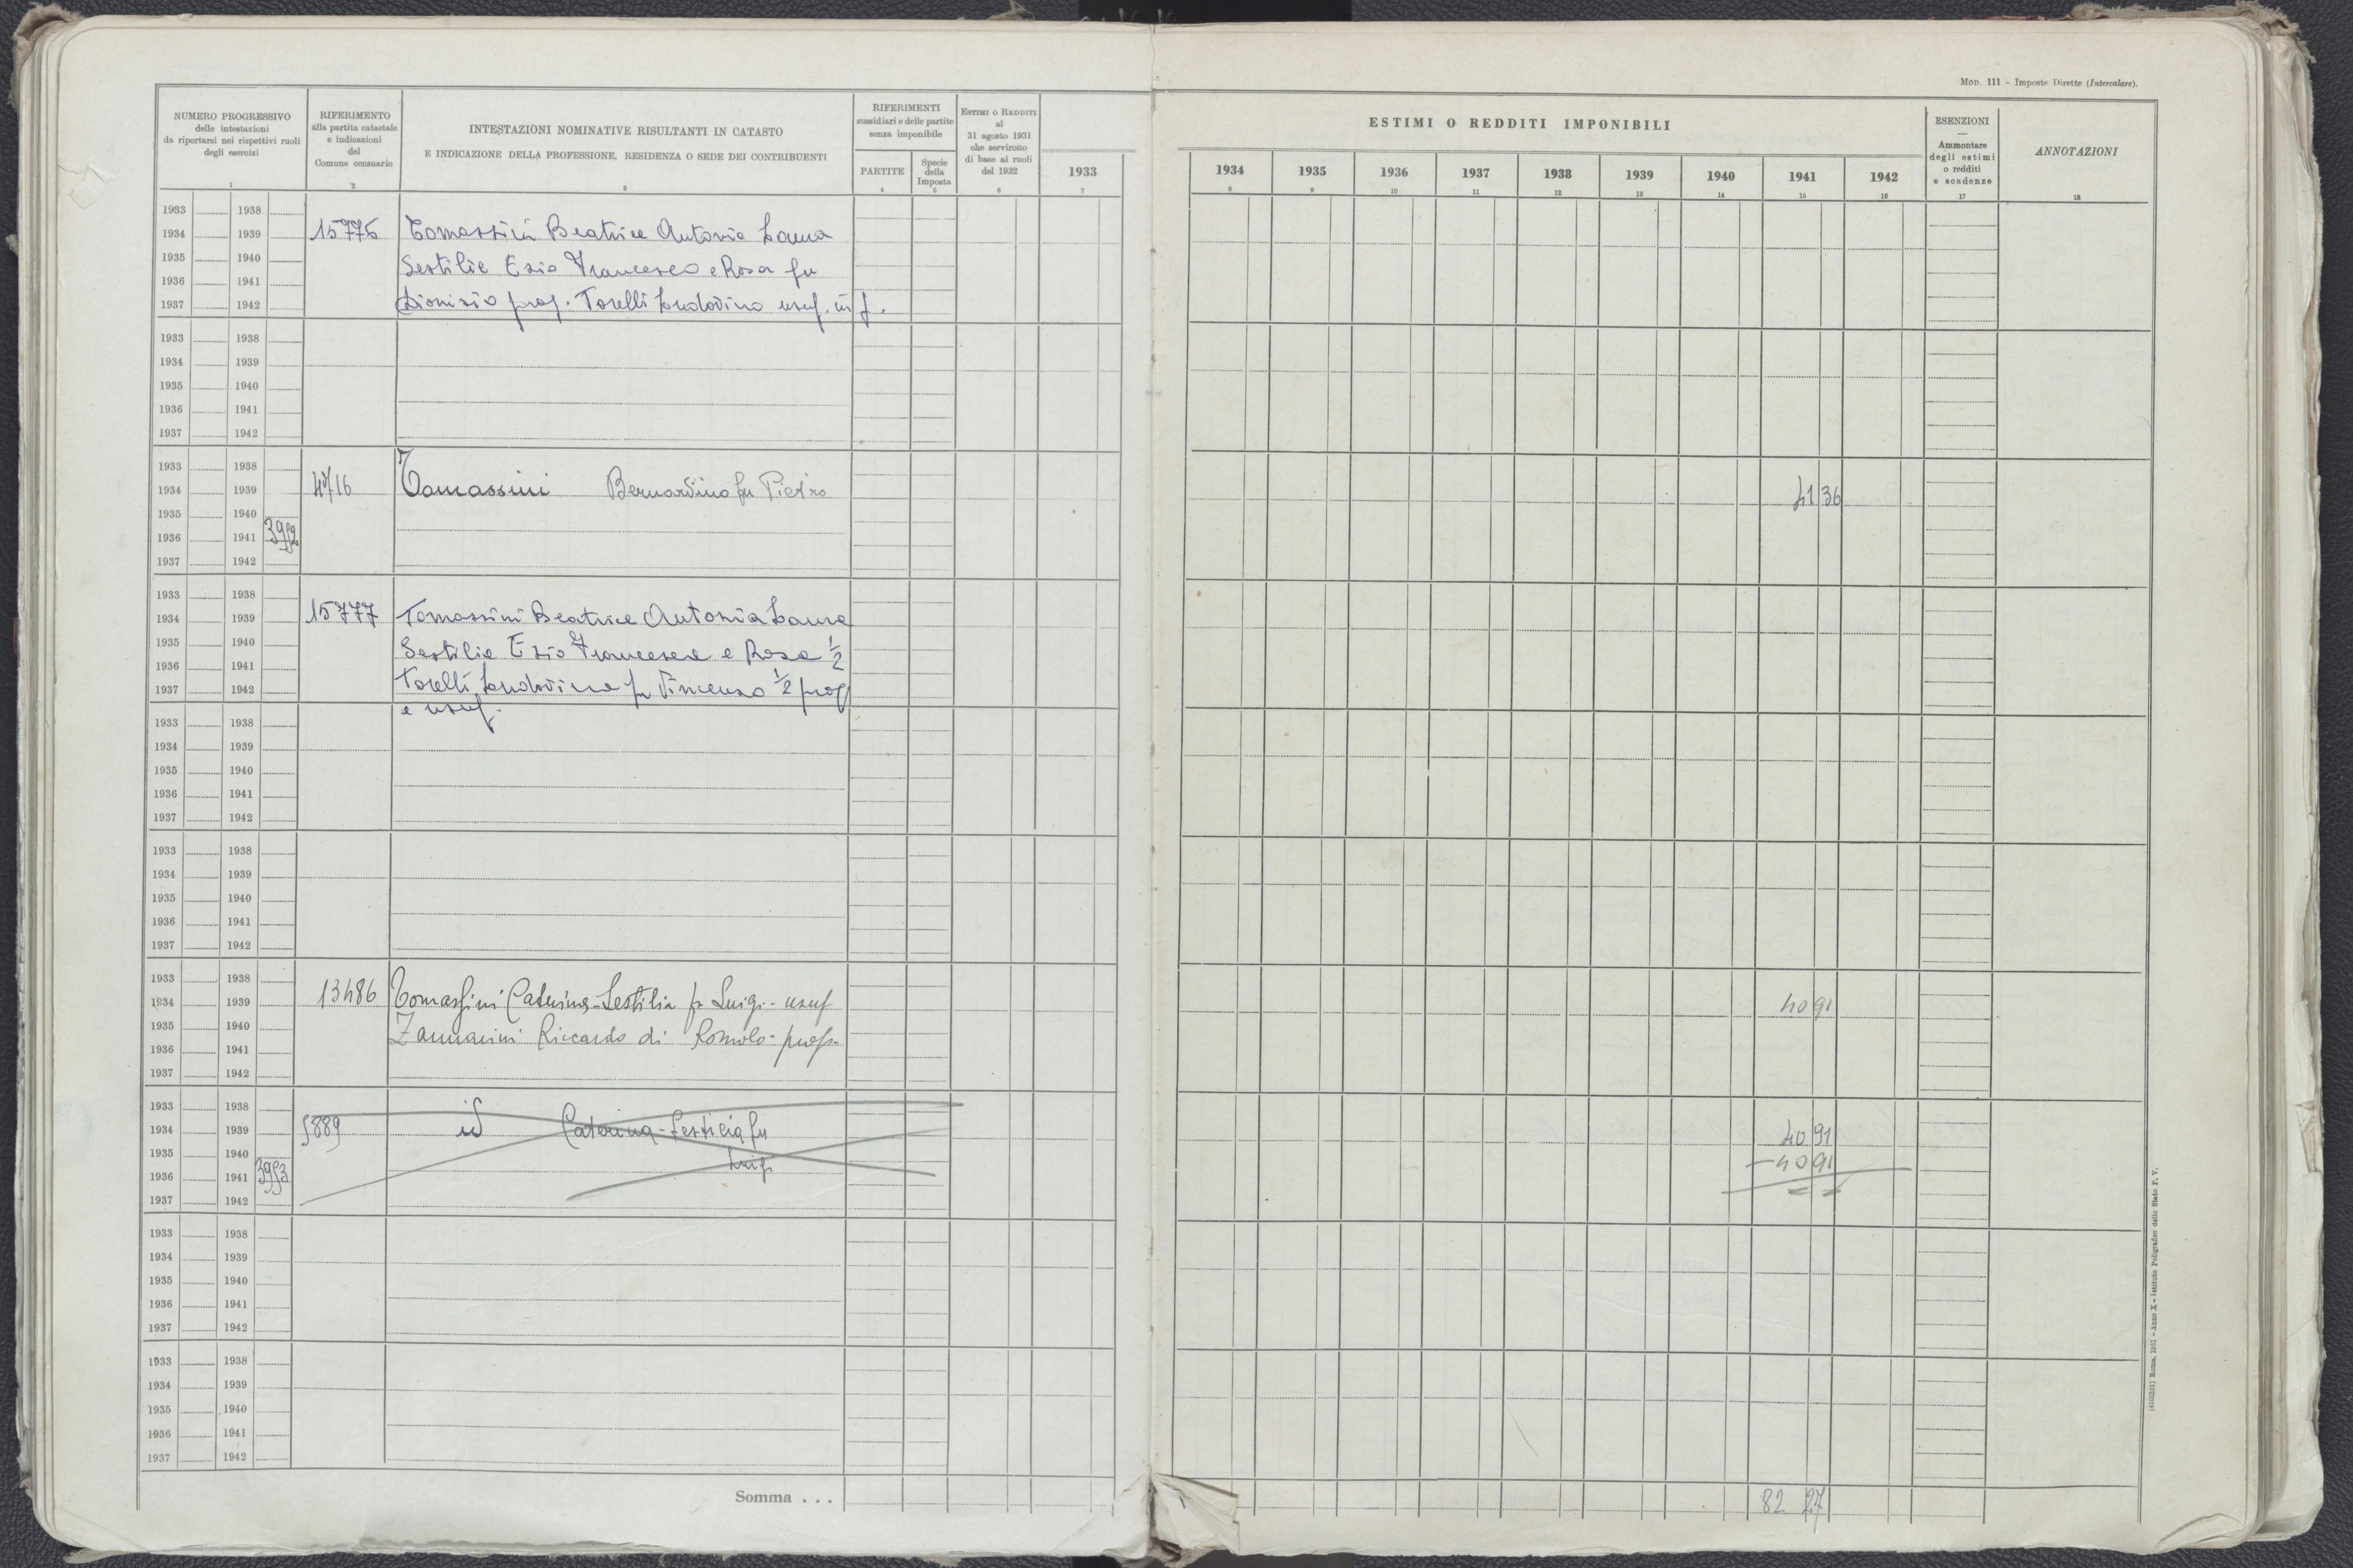 Mod. 111 - Imposte Dirette (Intercalare).
NUMERO PROGRESSIVO
delle intestazioni
da riportarsi nei rispettivi ruoli
degli esercizi
1
RIFERIMENTO
alla partita catastale
e indicazioni
del
Comune censuario
2
INTESTAZIONI NOMINATIVE RISULTANTI IN CATASTO
E INDICAZIONE DELLA PROFESSIONE, RESIDENZA O SEDE DEI CONTRIBUENTI
3
RIFERIMENTI
sussidiari e delle partite
senza imponibile
PARTITE
4
Specie
della
Imposta
5
Estimi o Redditi
al
31 agosto 1931
che servirono
di base ai ruoli
del 1932
6
1933
7
ESTIMI O REDDITI IMPONIBILI
1934 1935 1936 1937 1938 1939 1940 1941 1942
8 9 10 11 12 13 14 15 16
ESENZIONI
—
Ammontare
degli estimi
o redditi
e scadenze
17
ANNOTAZIONI
18
1933 1938
1934 1939 15776 Tomassini Beatrice Antonia Laura
1935 1940 Sestilie Ezio Francesco e Rosa fu
1936 1941
1937 1942 Dionisio prop. Torelli Londovina usuf. in f.
1933 1938
1934 1939
1935 1940
1936 1941
1937 1942
1933 1938
1934 1939 4716 Tomassini Bernardino fu Pietro 41 36
1935 1940
1936 1941 3952
1937 1942
1933 1938
1934 1939 15777 Tomassini Beatrice Antonia Laura
1935 1940 Sestilia Ezio Francesca e Rosa 1/2
1936 1941
1937 1942 Torelli Londovina fu Vincenzo 1/2 prop
e usuf.
1933 1938
1934 1939
1935 1940
1936 1941
1937 1942
1933 1938
1934 1939
1935 1940
1936 1941
1937 1942
1933 1938
1934 1939 13486 Tomassini Caterina-Sestilia fu Luigi - usuf 40 91
1935 1940 Zannarini Riccardo di Romolo - prop.
1936 1941
1937 1942
1933 1938
1934 1939 5889 id Caterina-Sestilia fu 40 91
1935 1940 Luigi - 40 91
1936 1941 3953
1937 1942
1933 1938
1934 1939
1935 1940
1936 1941
1937 1942
1933 1938
1934 1939
1935 1940
1936 1941
1937 1942
Somma . . . 82 27
(4100351) Roma, 1931 - Anno X - Istituto Poligrafico dello Stato P. V.